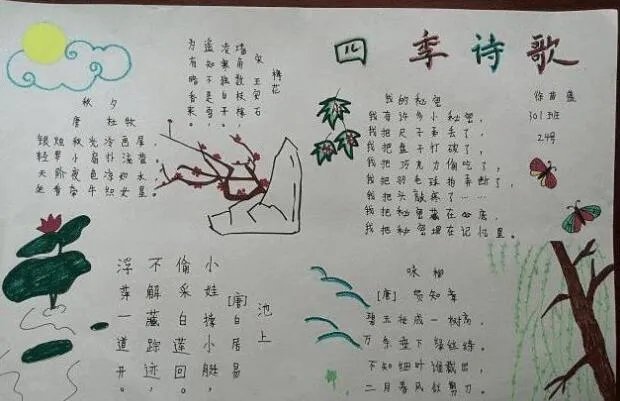 四季诗歌
秋夕
唐 杜牧
银烛秋光冷画屏,
轻罗小扇扑流萤。
天阶夜色凉如水,
坐看牵牛织女星。
梅花
宋 王安石
墙角数枝梅,
凌寒独自开。
遥知不是雪,
为有暗香来。
我的秘密
我有许多小秘密,
我把尺子弄丢了,
我把盘子打破了,
我把巧克力偷吃了,
我把羽毛球拍弄断了,
我把头敲疼了……
我把秘密藏在心底,
我把秘密埋在记忆里。
301班
24号
池上
[唐]白居易
小娃撑小艇,
偷采白莲回。
不解藏踪迹,
浮萍一道开。
咏柳
[唐] 贺知章
碧玉妆成一树高,
万条垂下绿丝绦。
不知细叶谁裁出,
二月春风似剪刀。